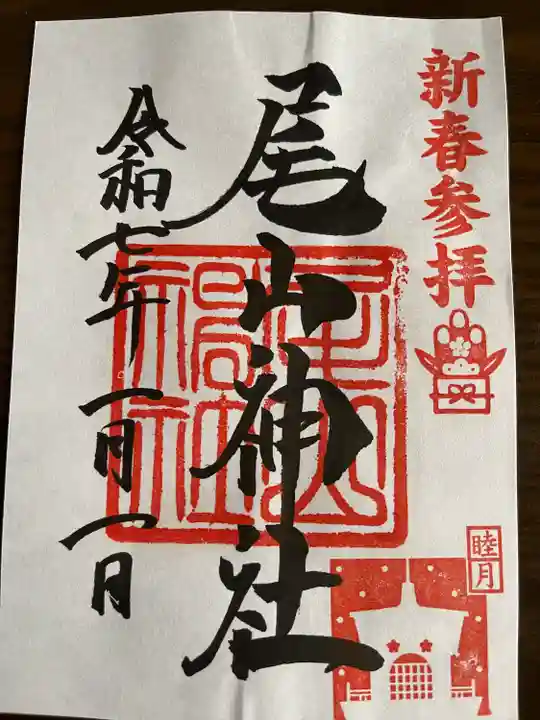 新春参拝
睦月
尾山神社
令和七年一月一日